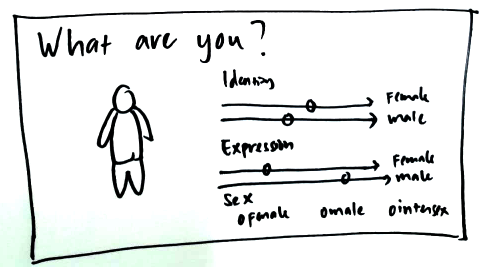 What are you?
Identity
Female
male
Expression
Female
male
Sex
Female male intersex